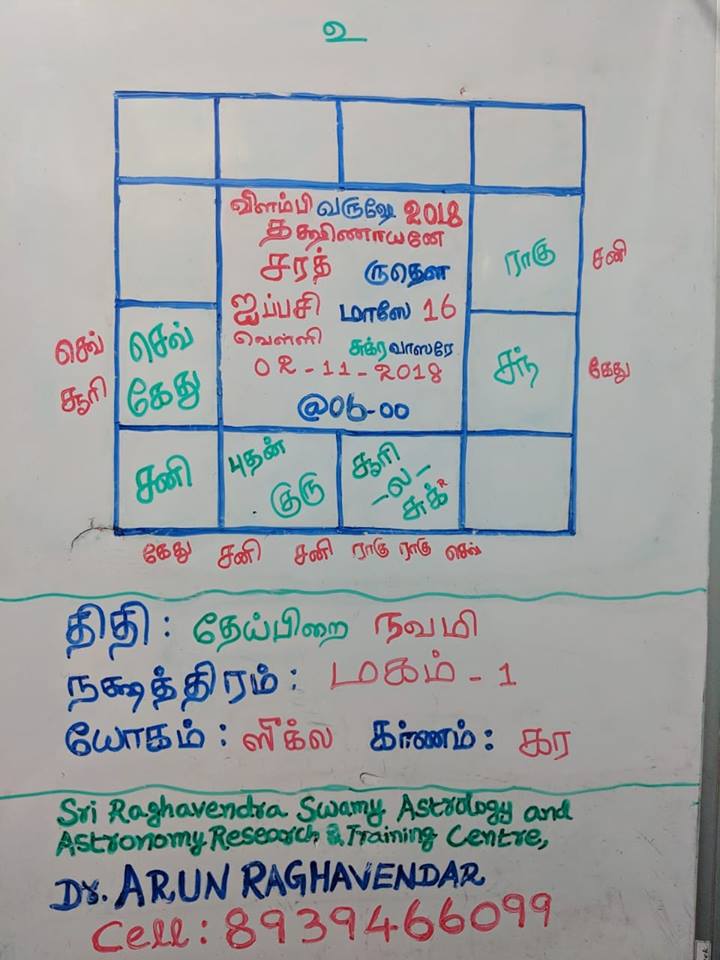 உ
விளம்பி வருஷே 2018
தக்ஷிணாயனே
சரத் ருதௌ
ஐப்பசி மாஸே 16
வெள்ளி சுக்ர வாஸரே
02-11-2018
@06-00
ராகு சனி
செவ் செவ்
சூரி கேது
சந் கேது
சனி
புதன்
குரு
சூரி
-ல-
சுக் R
கேது சனி சனி ராகு ராகு செவ்
திதி: தேய்பிறை நவமி
நக்ஷத்திரம்: மகம் - 1
யோகம்: ஸீக்ல கர்ணம்: கர
Sri Raghavendra Swamy Astrology and
Astronomy Research & Training Centre,
Dr. ARUN RAGHAVENDAR
Cell: 8939466099